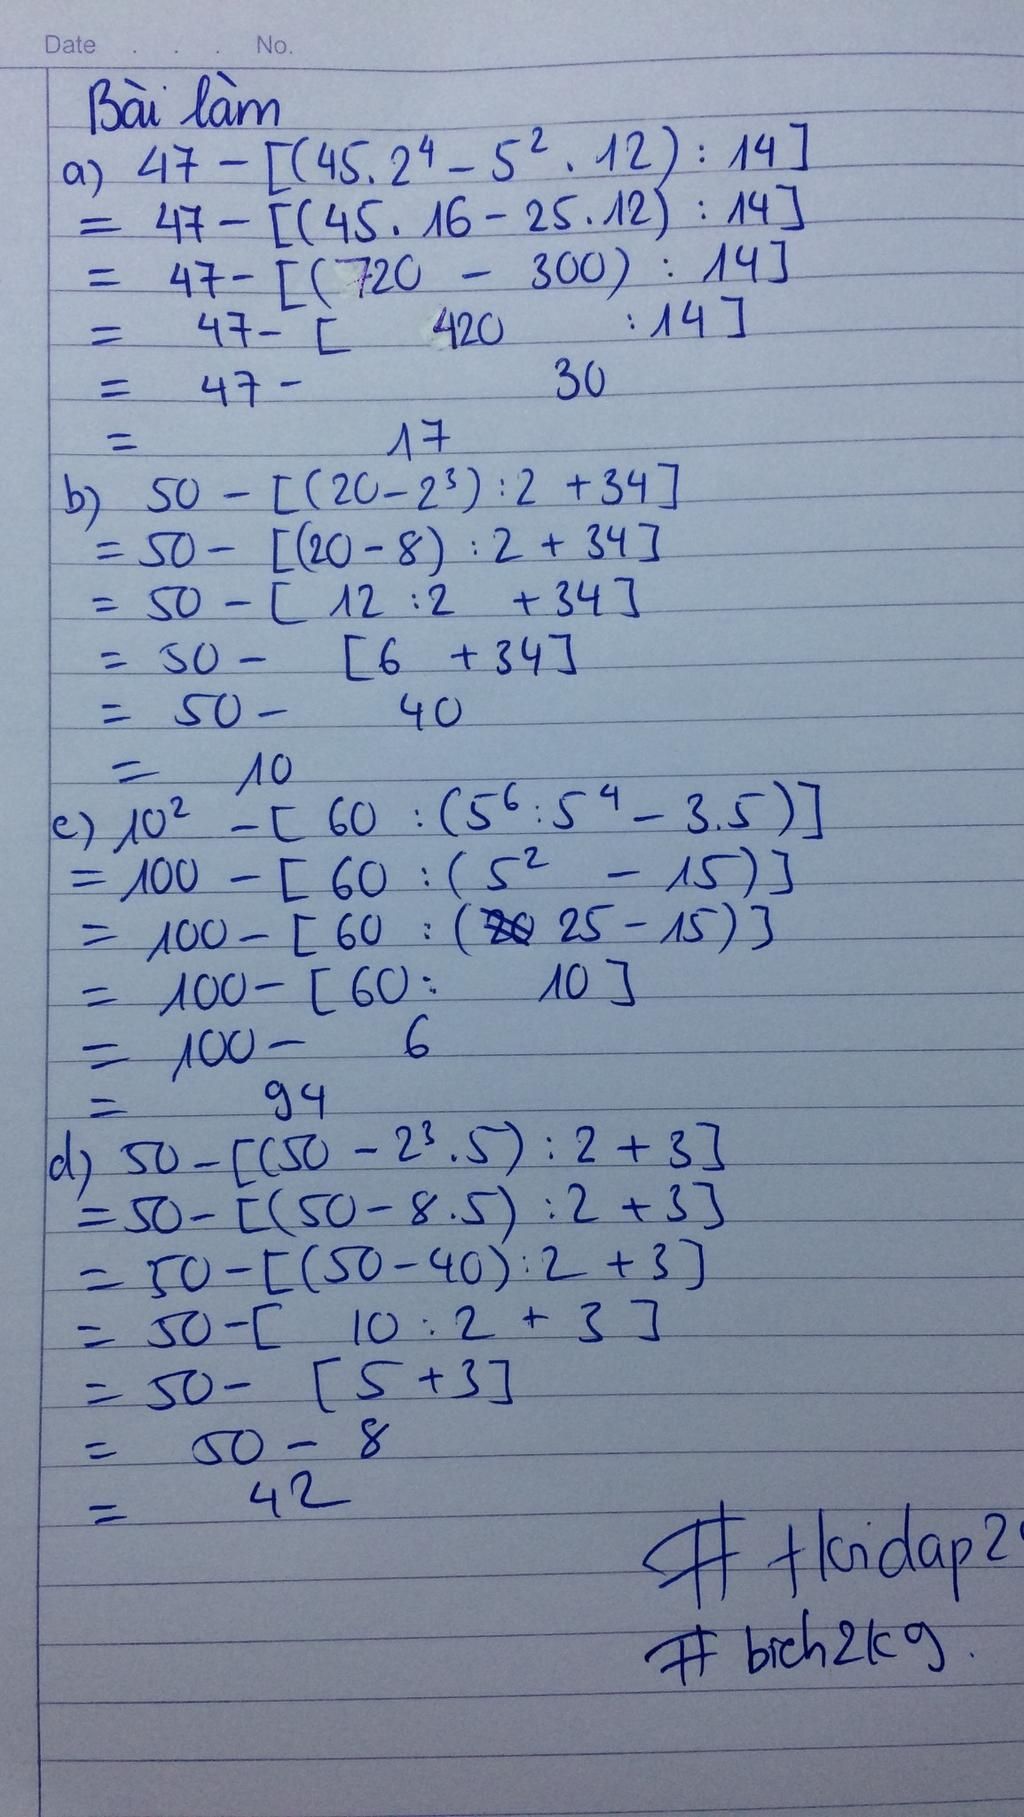 Date . . . No.
Bài làm
a) 47 - [(45.2⁴ - 5² . 12) : 14]
= 47 - [(45. 16 - 25.12) : 14]
= 47 - [(720 - 300) : 14]
= 47 - [ 420 : 14]
= 47 - 30
= 17
b) 50 - [(20 - 2³) : 2 + 34]
= 50 - [(20 - 8) : 2 + 34]
= 50 - [ 12 : 2 + 34]
= 50 - [6 + 34]
= 50 - 40
= 10
c) 10² - [ 60 : (5⁶ : 5⁴ - 3.5)]
= 100 - [ 60 : ( 5² - 15)]
= 100 - [ 60 : ( 25 - 15)]
= 100 - [60 : 10 ]
= 100 - 6
= 94
d) 50 - [(50 - 2³ .5) : 2 + 3]
= 50 - [(50 - 8.5) : 2 + 3]
= 50 - [(50 - 40) : 2 + 3]
= 50 - [ 10 : 2 + 3 ]
= 50 - [ 5 + 3]
= 50 - 8
= 42
# bich2k9.